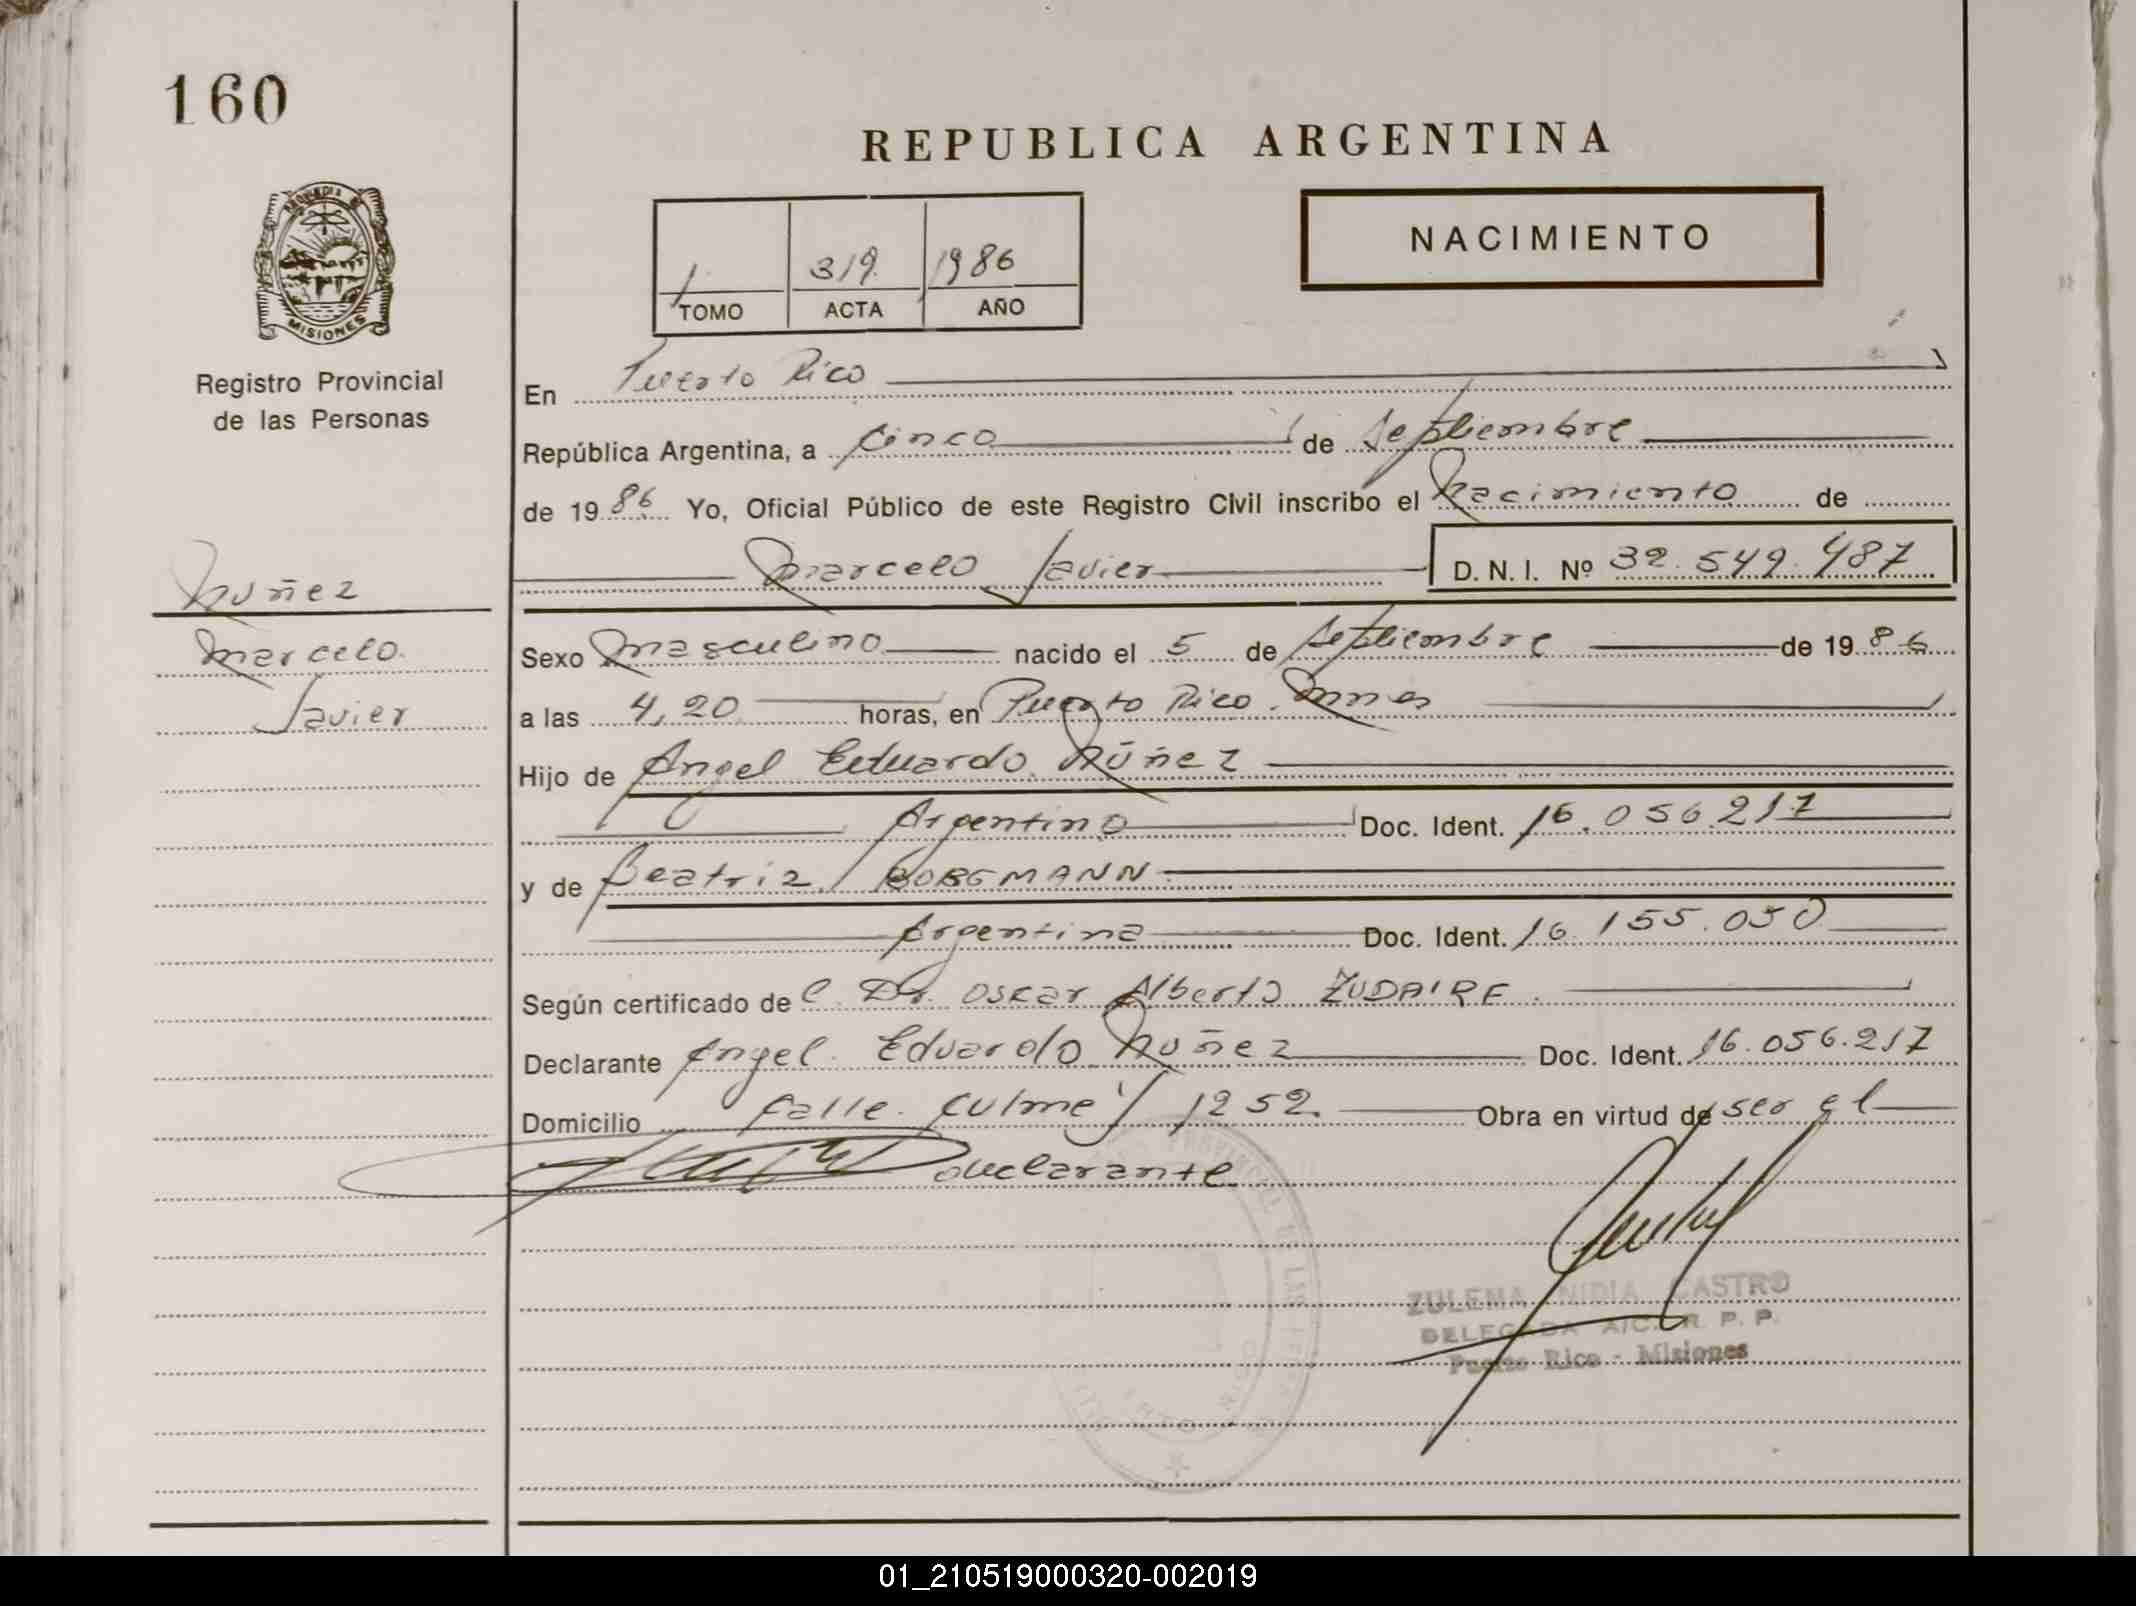 160
REPUBLICA ARGENTINA
NACIMIENTO
1 319 1986
TOMO ACTA AÑO
MISIONES
Registro Provincial
de las Personas
En Puerto Rico
República Argentina, a Cinco de Septiembre
de 1986 Yo, Oficial Público de este Registro Civil inscribo el Nacimiento de
Marcelo Javier D. N. I. Nº 32.549.487
Nuñez
Marcelo
Javier
Sexo Masculino nacido el 5 de Septiembre de 1986
a las 4,20 horas, en Puerto Rico. Mnes
Hijo de Angel Eduardo Núñez
Argentino Doc. Ident. 16.056.217
y de Beatriz BORGMANN
Argentina Doc. Ident. 16.155.050
Según certificado de l Dr. Oscar Alberto ZUDAIRE.
Declarante Angel Eduardo Nuñez Doc. Ident. 16.056.217
Domicilio Calle Culmey 1252. Obra en virtud de ser el
declarante
ZULEMA NIDIA CASTRO
DELEGADA A/C. R. P. P.
Puerto Rico - Misiones
01_210519000320-002019